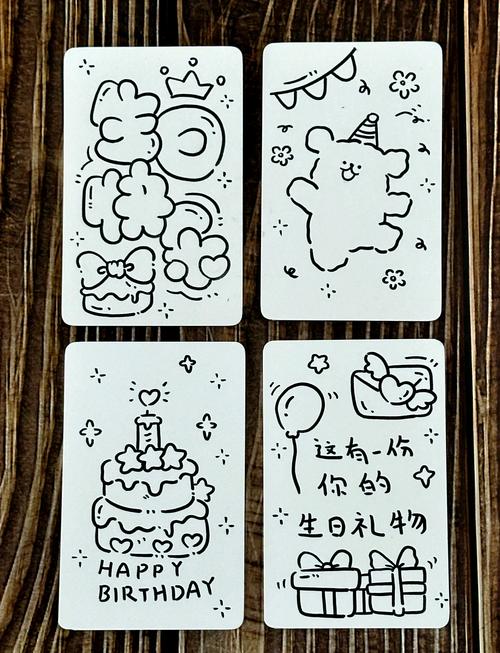 生日
快乐
HAPPY
BIRTHDAY
这有一份
你的
生日礼物